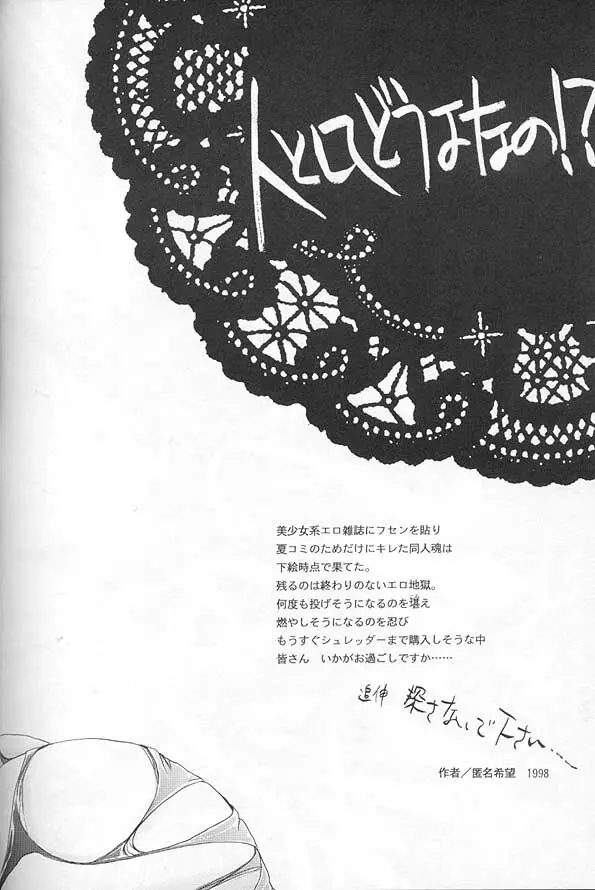 人としてどうよなの!?
美少女系エロ雑誌にフセンを貼り
夏コミのためだけにキレた同人魂は
下絵時点で果てた。
残るのは終わりのないエロ地獄。
何度も投げそうになるのを堪え
燃やしそうになるのを忍び
もうすぐシュレッダーまで購入しそうな中
皆さん　いかがお過ごしですか……
追伸 探さないで下さい……
作者／匿名希望　1998